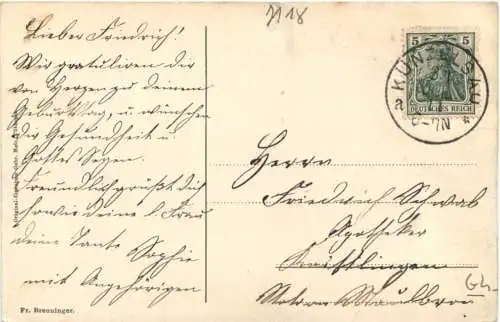 7118
Lieber Friedrich!
Wir gratuliren dir
von Herzen zu deinem
Geburtstag, u. wünschen
dir Gesundheit u.
Gottes Segen.
Freundlich grüßt dich
sowie deine l. Frau
deine Tante Sophie
mit Angehörigen
Fr. Breuninger.
5 5
DEUTSCHES REICH
KÜNZELSAU
a
6-7N *
Herrn
Friedrich Schwab
Apotheker
Maulbron